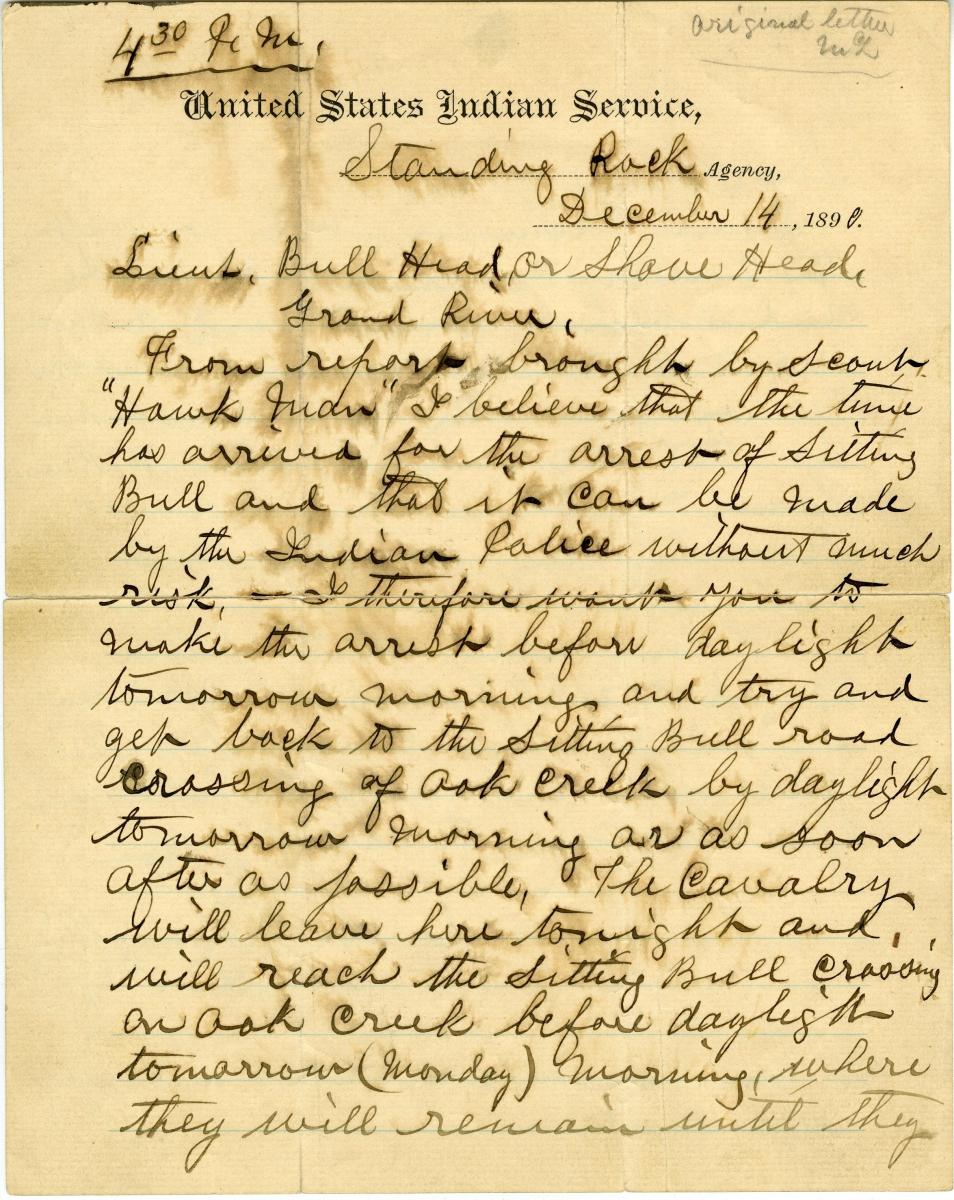 4 30 P. M.
original letter
McL
United States Indian Service,
Standing Rock Agency,
December 14, 1890.
Lieut. Bull Head, or Shave Head,
Grand River,
From report brought by scout
"Hawk Man" I believe that the time
has arrived for the arrest of Sitting
Bull and that it can be made
by the Indian Police without much
risk. — I therefore want you to
make the arrest before daylight
tomorrow morning and try and
get back to the Sitting Bull road
crossing of Oak Creek by daylight
tomorrow morning or as soon
after as possible. The Cavalry
will leave here tonight and
will reach the Sitting Bull crossing
on Oak Creek before daylight
tomorrow (Monday) morning, where
they will remain until they